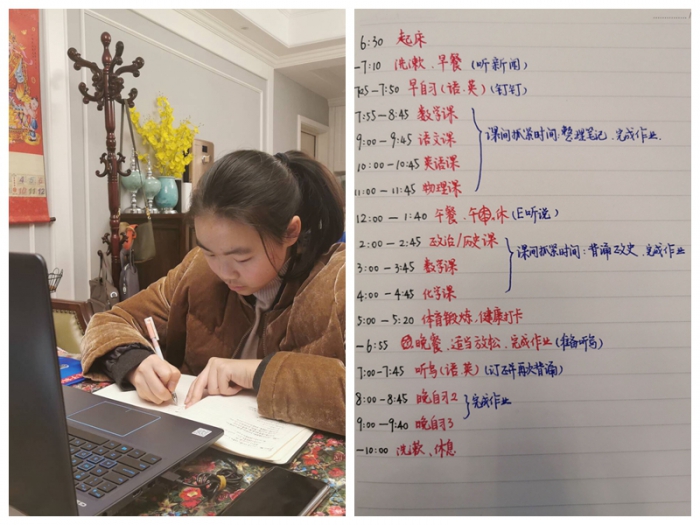 6:30 起床
-7:10 洗漱、早餐(听新闻)
7:05-7:50 早自习(语.英)(钉钉)
7:55-8:45 数学课
9:00-9:45 语文课
课间抓紧时间:整理笔记、完成作业.
10:00-10:45 英语课
11:00-11:45 物理课
12:00-1:40 午餐、午休(E听说)
2:00-2:45 政治/历史课
课间抓紧时间:背诵政史、完成作业
3:00-3:45 数学课
4:00-4:45 化学课
5:00-5:20 体育锻炼、健康打卡
-6:55 晚餐、适当放松、完成作业(准备听写)
7:00-7:45 听写(语.英)(订正并再次背诵)
8:00-8:45 晚自习2
完成作业
9:00-9:40 晚自习3
-10:00 洗漱、休息